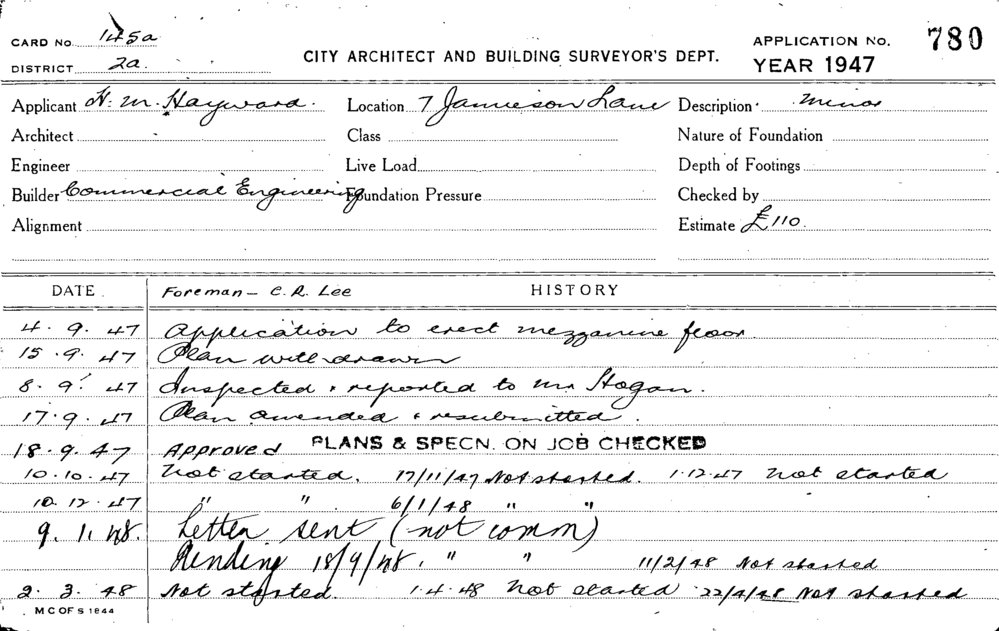 CARD No. 145a
DISTRICT 2a.
CITY ARCHITECT AND BUILDING SURVEYOR'S DEPT.
APPLICATION No. 780
YEAR 1947
Applicant H. M. Hayward. Location 7 Jamieson Lane Description. Minor
Architect Class Nature of Foundation
Engineer Live Load Depth of Footings
Builder Commercial Engineering Foundation Pressure Checked by
Alignment Estimate £110.
DATE Foreman - C. R. Lee HISTORY
4. 9. 47 Application to erect mezzanine floor.
15. 9. 47 Plan withdrawn
8. 9. 47 Inspected & reported to Mr Hogan.
17. 9. 47 Plan amended & resubmitted.
18. 9. 47 Approved PLANS & SPECN. ON JOB CHECKED
10. 10. 47 Not started. 17/11/47 Not started. 1.12.47 Not started
10. 12. 47 " " 6/1/48 " "
9. 1. 48. Letter sent (not comm)
Pending 18/9/48. " " 11/2/48 Not started
2. 3. 48 Not started. 1.4.48 Not started 22/4/48 Not started
M C OF S 1944